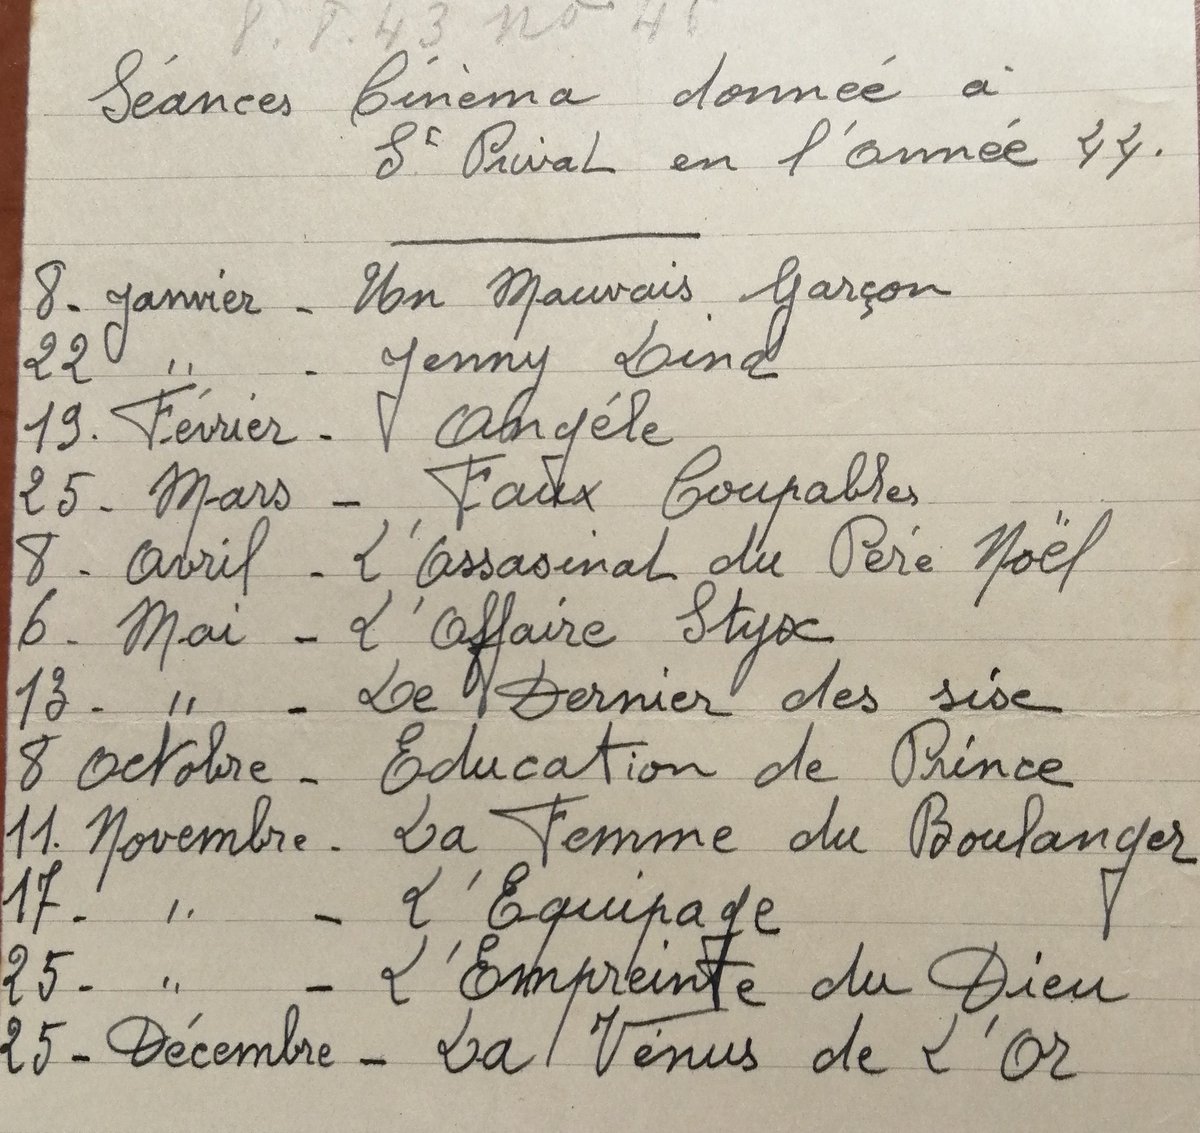 8.8.43 no 45
Séances Cinèma donnée à
St Privat en l'année 44.
8. Janvier - Un Mauvais Garçon
22 " - Jenny Lind
19. Février - Angéle
25 - Mars - Faux Coupables
8 - Avril - L'Assasinat du Pére Noël
6 - Mai - L'Affaire Styx
13 - " - Le Dernier des six
8 Octobre - Education de Prince
11. Novembre - La Femme du Boulanger
17 - " - L'Equipage
25 - " - L'Empreinte du Dieu
25 - Décembre - La Vénus de L'Or